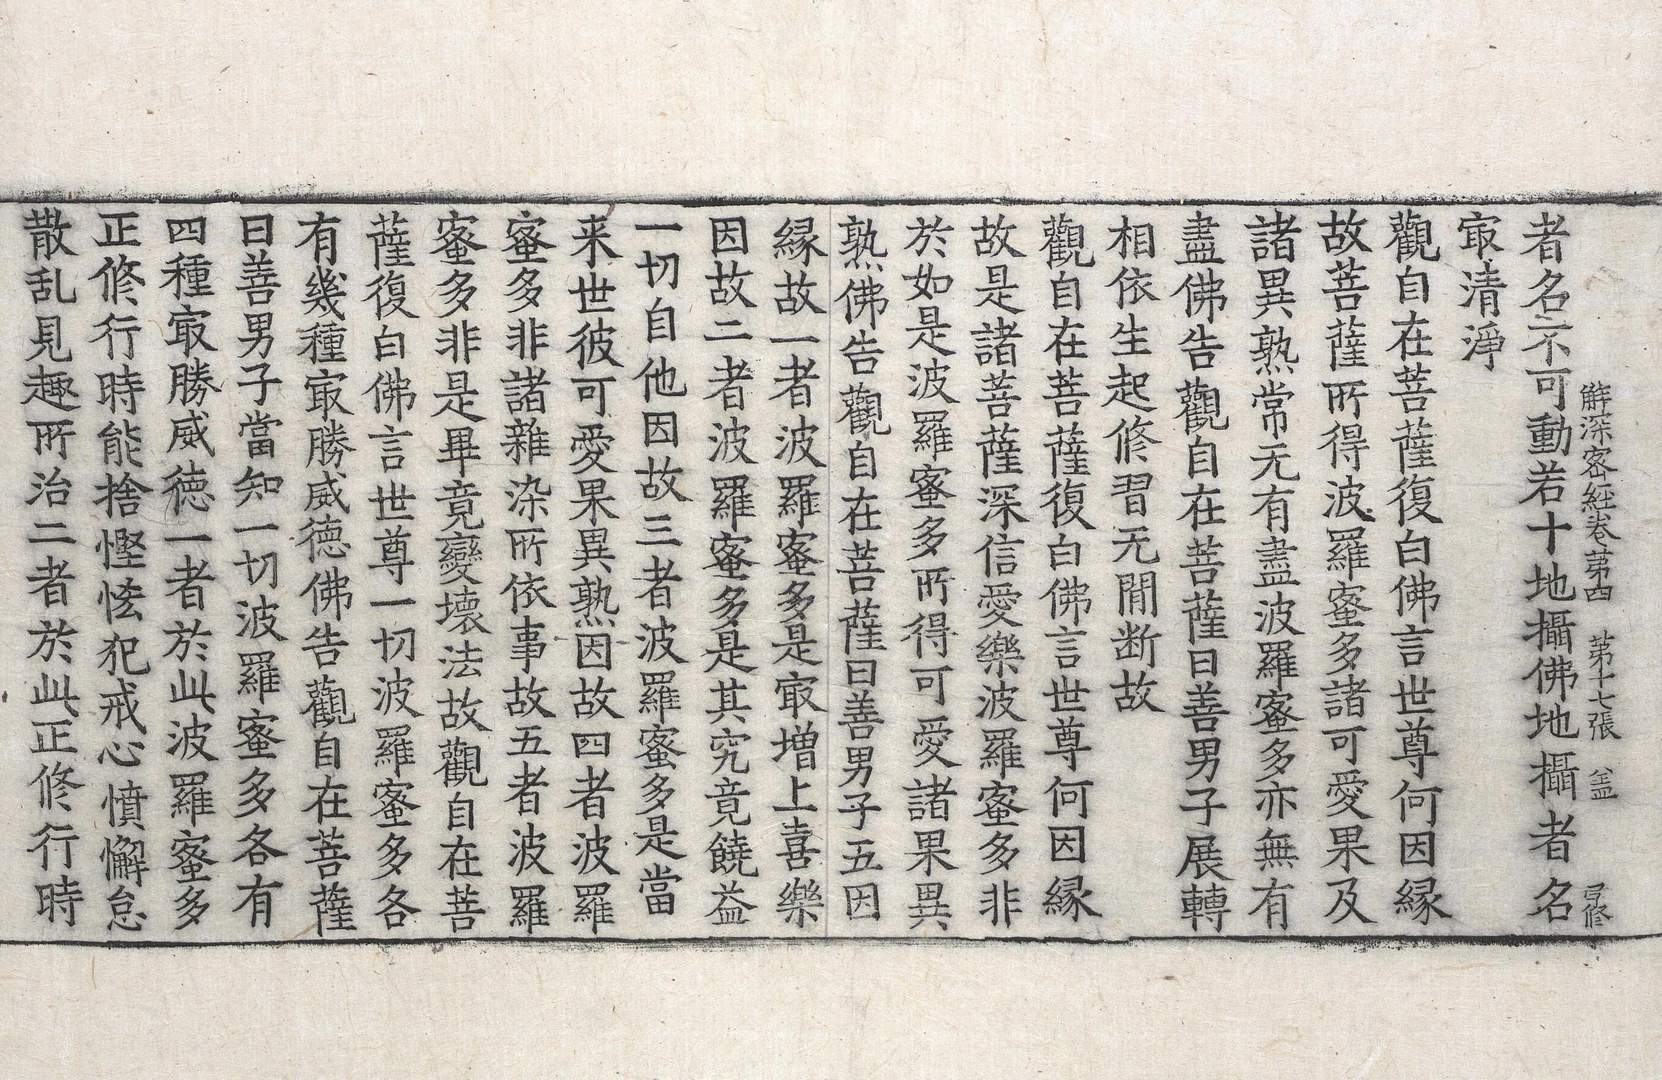 解深密經卷第四 第十七張 盖
者名不可動若十地攝佛地攝者名
冣清淨
觀自在菩薩復白佛言世尊何因縁
故菩薩所得波羅蜜多諸可愛果及
諸異熟常无有盡波羅蜜多亦無有
盡佛告觀自在菩薩曰善男子展轉
相依生起修習无閒断故
觀自在菩薩復白佛言世尊何因縁
故是諸菩薩深信愛樂波羅蜜多非
於如是波羅蜜多所得可愛諸果異
熟佛告觀自在菩薩曰善男子五因
縁故一者波羅蜜多是冣増上喜樂
因故二者波羅蜜多是其究竟饒益
一切自他因故三者波羅蜜多是當
来世彼可愛果異熟因故四者波羅
蜜多非諸雜染所依事故五者波羅
蜜多非是畢竟變壊法故觀自在菩
薩復白佛言世尊一切波羅蜜多各
有幾種冣勝威徳佛告觀自在菩薩
曰善男子當知一切波羅蜜多各有
四種冣勝威徳一者於此波羅蜜多
正修行時能捨慳恡犯戒心憤懈怠
散乱見趣所治二者於此正修行時